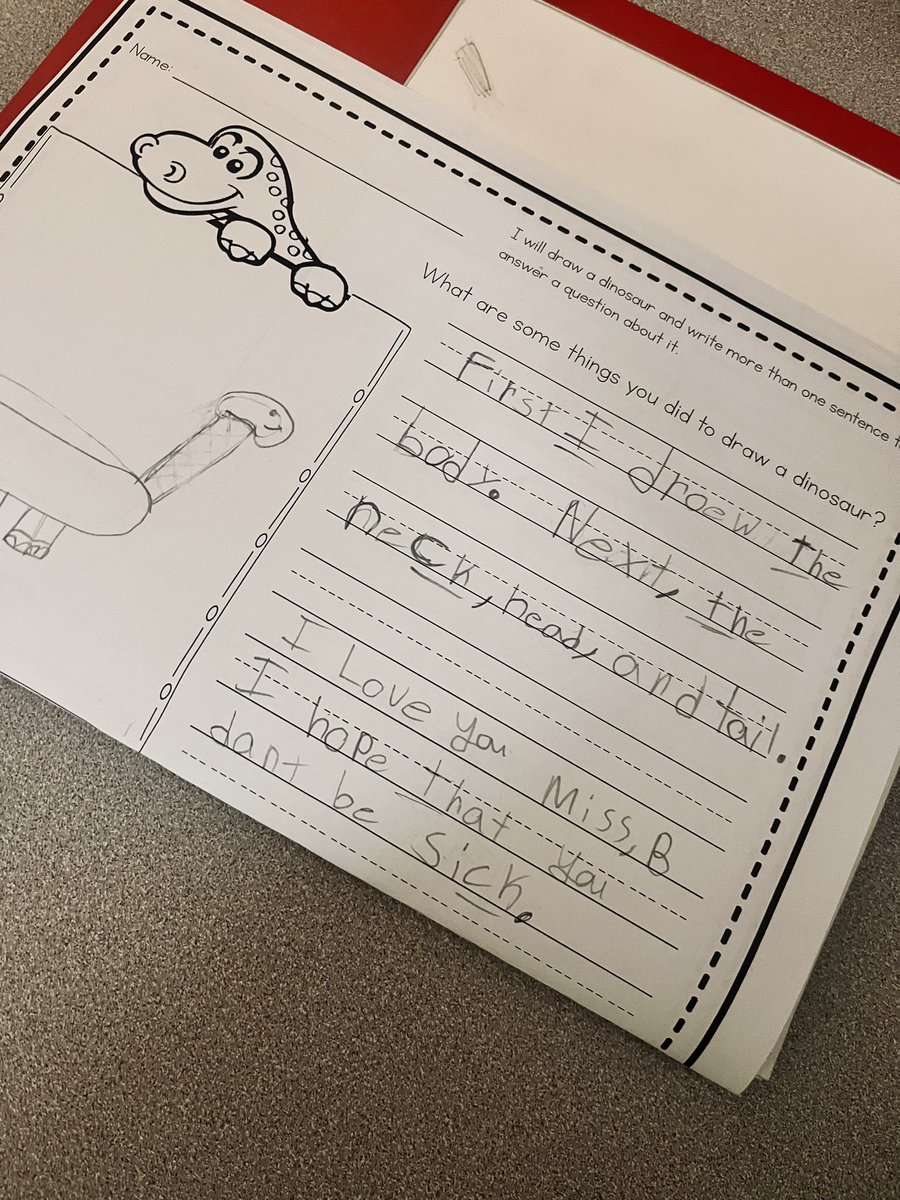 Name:
I will draw a dinosaur and write more than one sentence
answer a question about it.
What are some things you did to draw a dinosaur?
First I droew the
body. Nexit, the
neck, head, and tail.
I Love you Miss, B
I hope that you
dant be sick.